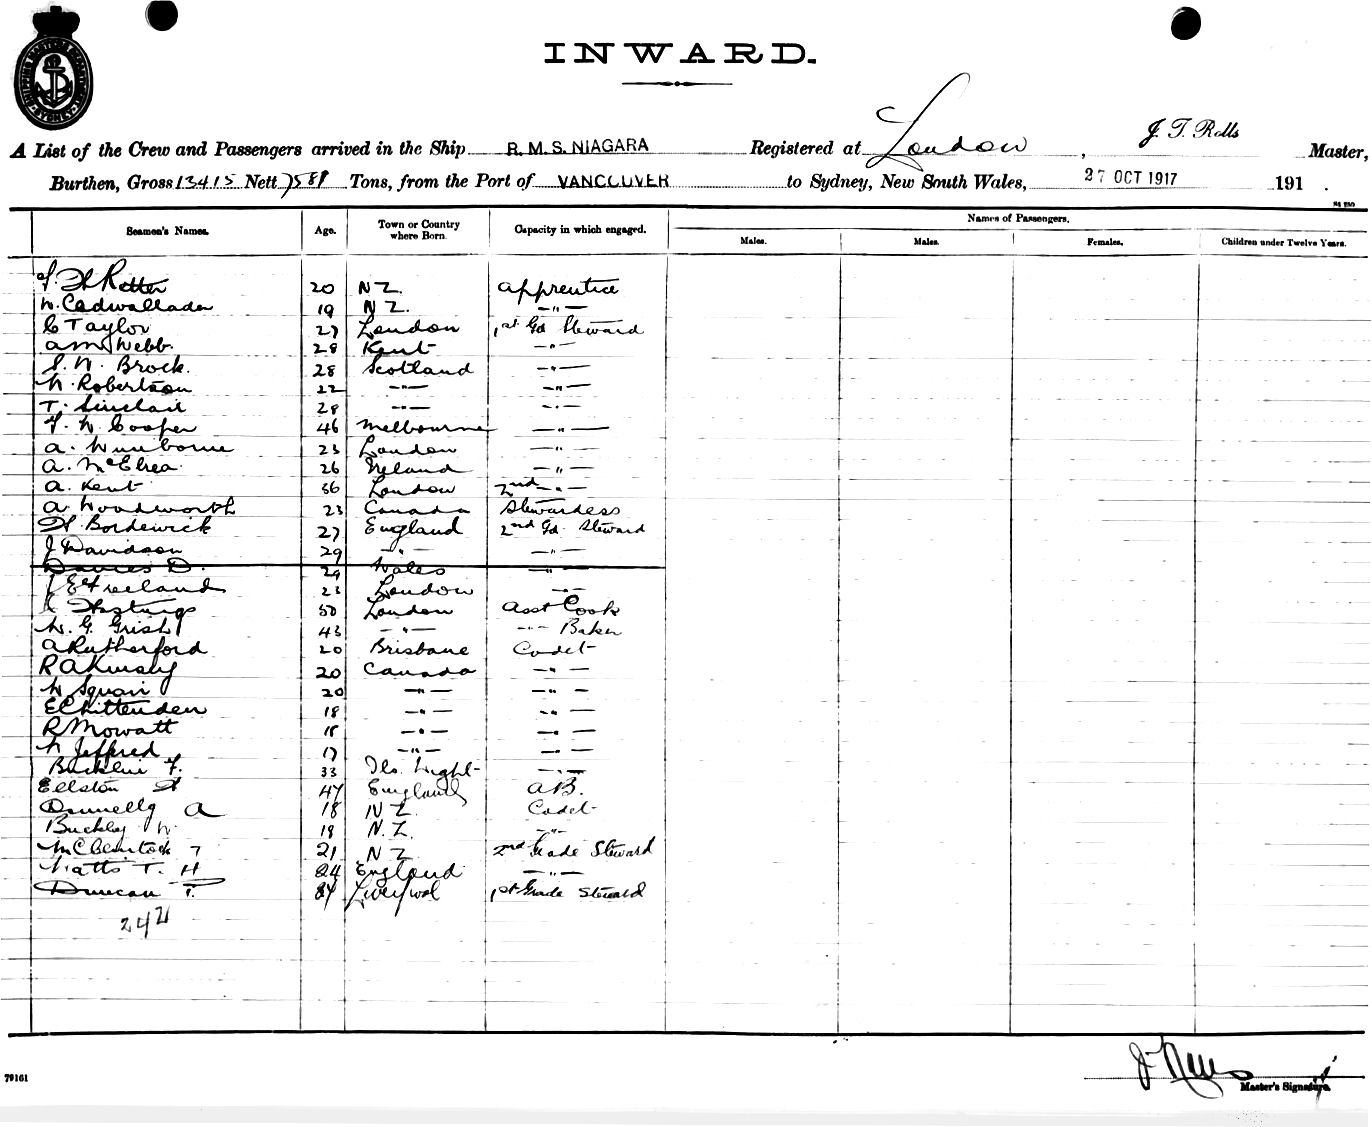 INWARD.
A List of the Crew and Passengers arrived in the Ship R. M. S. NIAGARA Registered at London, J. T. Rolls Master,
Burthen, Gross 13415 Nett 7581 Tons, from the Port of VANCOUVER to Sydney, New South Wales, 27 OCT 1917 191 .
Seamen's Names. Age. Town or Country where Born. Capacity in which engaged. Names of Passengers.
Males. Males. Females. Children under Twelve Years.
20 N Z. Apprentice
W. Cadwallader 19 N Z. — " —
C Taylor 27 London 1st Gd Steward
A M Webb 28 Kent — " —
S. N. Brock. 28 Scotland — " —
W. Robertson 22 — " — — " —
T. Sinclair 28 — " — — " —
F. W. Cooper 46 Melbourne — " —
A. Wimborne 23 London — " —
A. McElrea. 26 Ireland — " —
A. Kent 36 London 2nd — " —
A Woodworth 23 Canada Stewardess
H. Bordewick 27 England 2nd Gd. Steward
J Davidson 29 — " — — " —
Davies D. 29 Wales — " —
J E Freeland 23 London — " —
Hastings 50 London Asst Cook
W. G. Grish 43 — " — — " — Baker
A Rutherford 20 Brisbane Cadet
R A Kinsley 20 Canada — " —
W Squair 20 — " — — " —
E Chittenden 18 — " — — " —
R Mowatt 18 — " — — " —
W Jeffred 17 — " — — " —
Bucklin F. 33 Wight — " —
Ellston H 47 England A B.
Donnelly A 18 N Z Cadet
Buckley W. 18 N. Z. — " —
McClintock T 21 N Z 2nd Grade Steward
Watts T. H 24 England — " —
Duncan T. Liverpool 1st Grade Steward
242
79161
Master's Signature.